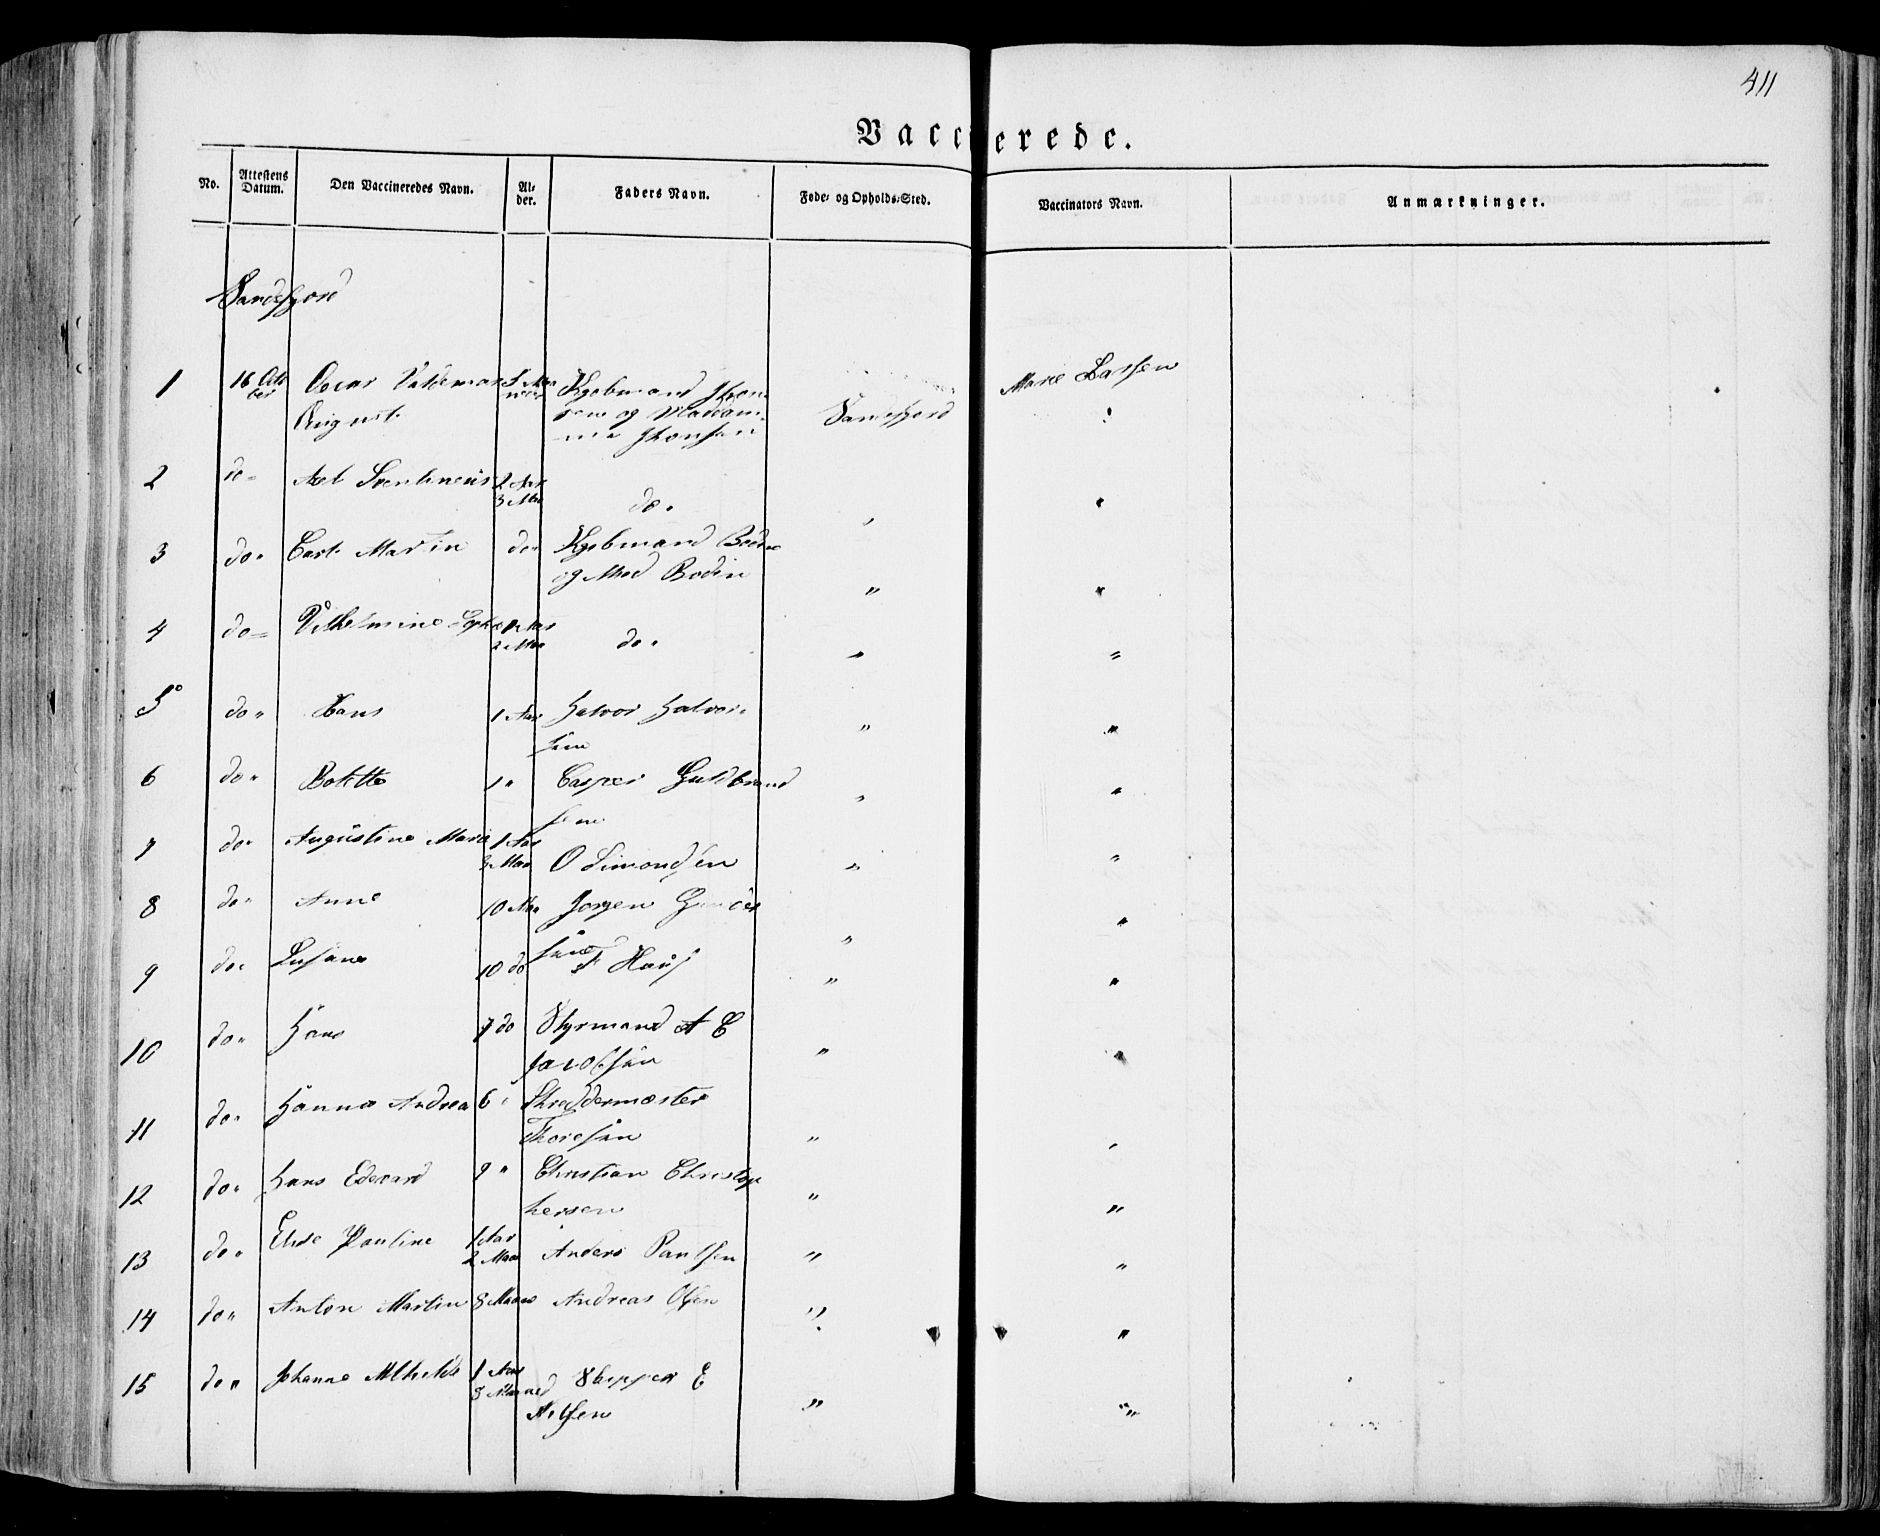 411
Vaccinerede.
No. Attestens Datum. Den Vaccineredes Navn. Al-der. Faders Navn. Føde- og Opholds-Sted. Vaccinators Navn. Anmærkninger.
Sandefjord
1 16 Octo Oscar Valdemar 5 Maa Kjøbmand Jhon Marie Larsen
ber August neder sen og Madam Sandefjord "
Jhonsen
2 do Axel 2 Aar
3 Maa do "
3 do " Carl Martin do " Kjøbmand Bodin
og Mad Bodin " "
4 do Vilhelmine Aar
2 Maa do " " "
5 do " Hans 1 Aar Halvor Halvor
sen " "
6 do " Bolette 1 " Casper Guldbrand " "
sen
7 do " Augustine Marie 1 Aar
3 Maa O Simondsen " "
8 do " Anne 10 Maa Jorgen
sen " "
9 do " Susane 10 do " "
10 do " Hans 7 do Styrmand A C
Jacobsen " "
11 do " Hanna Andrea 6 " Skreddermæster
Thoresen " "
12 do " Hans Edevard 9 " Christian Christop
hersen " "
13 do " Else Pauline 1 Aar
2 Maa Anders Paulsen " "
14 do " Anton Martin 8 Maane Andreas Olsen " "
15 do " Johanne Mthilde 1 Aar Skipper E
8 Maaned Nilsen " "